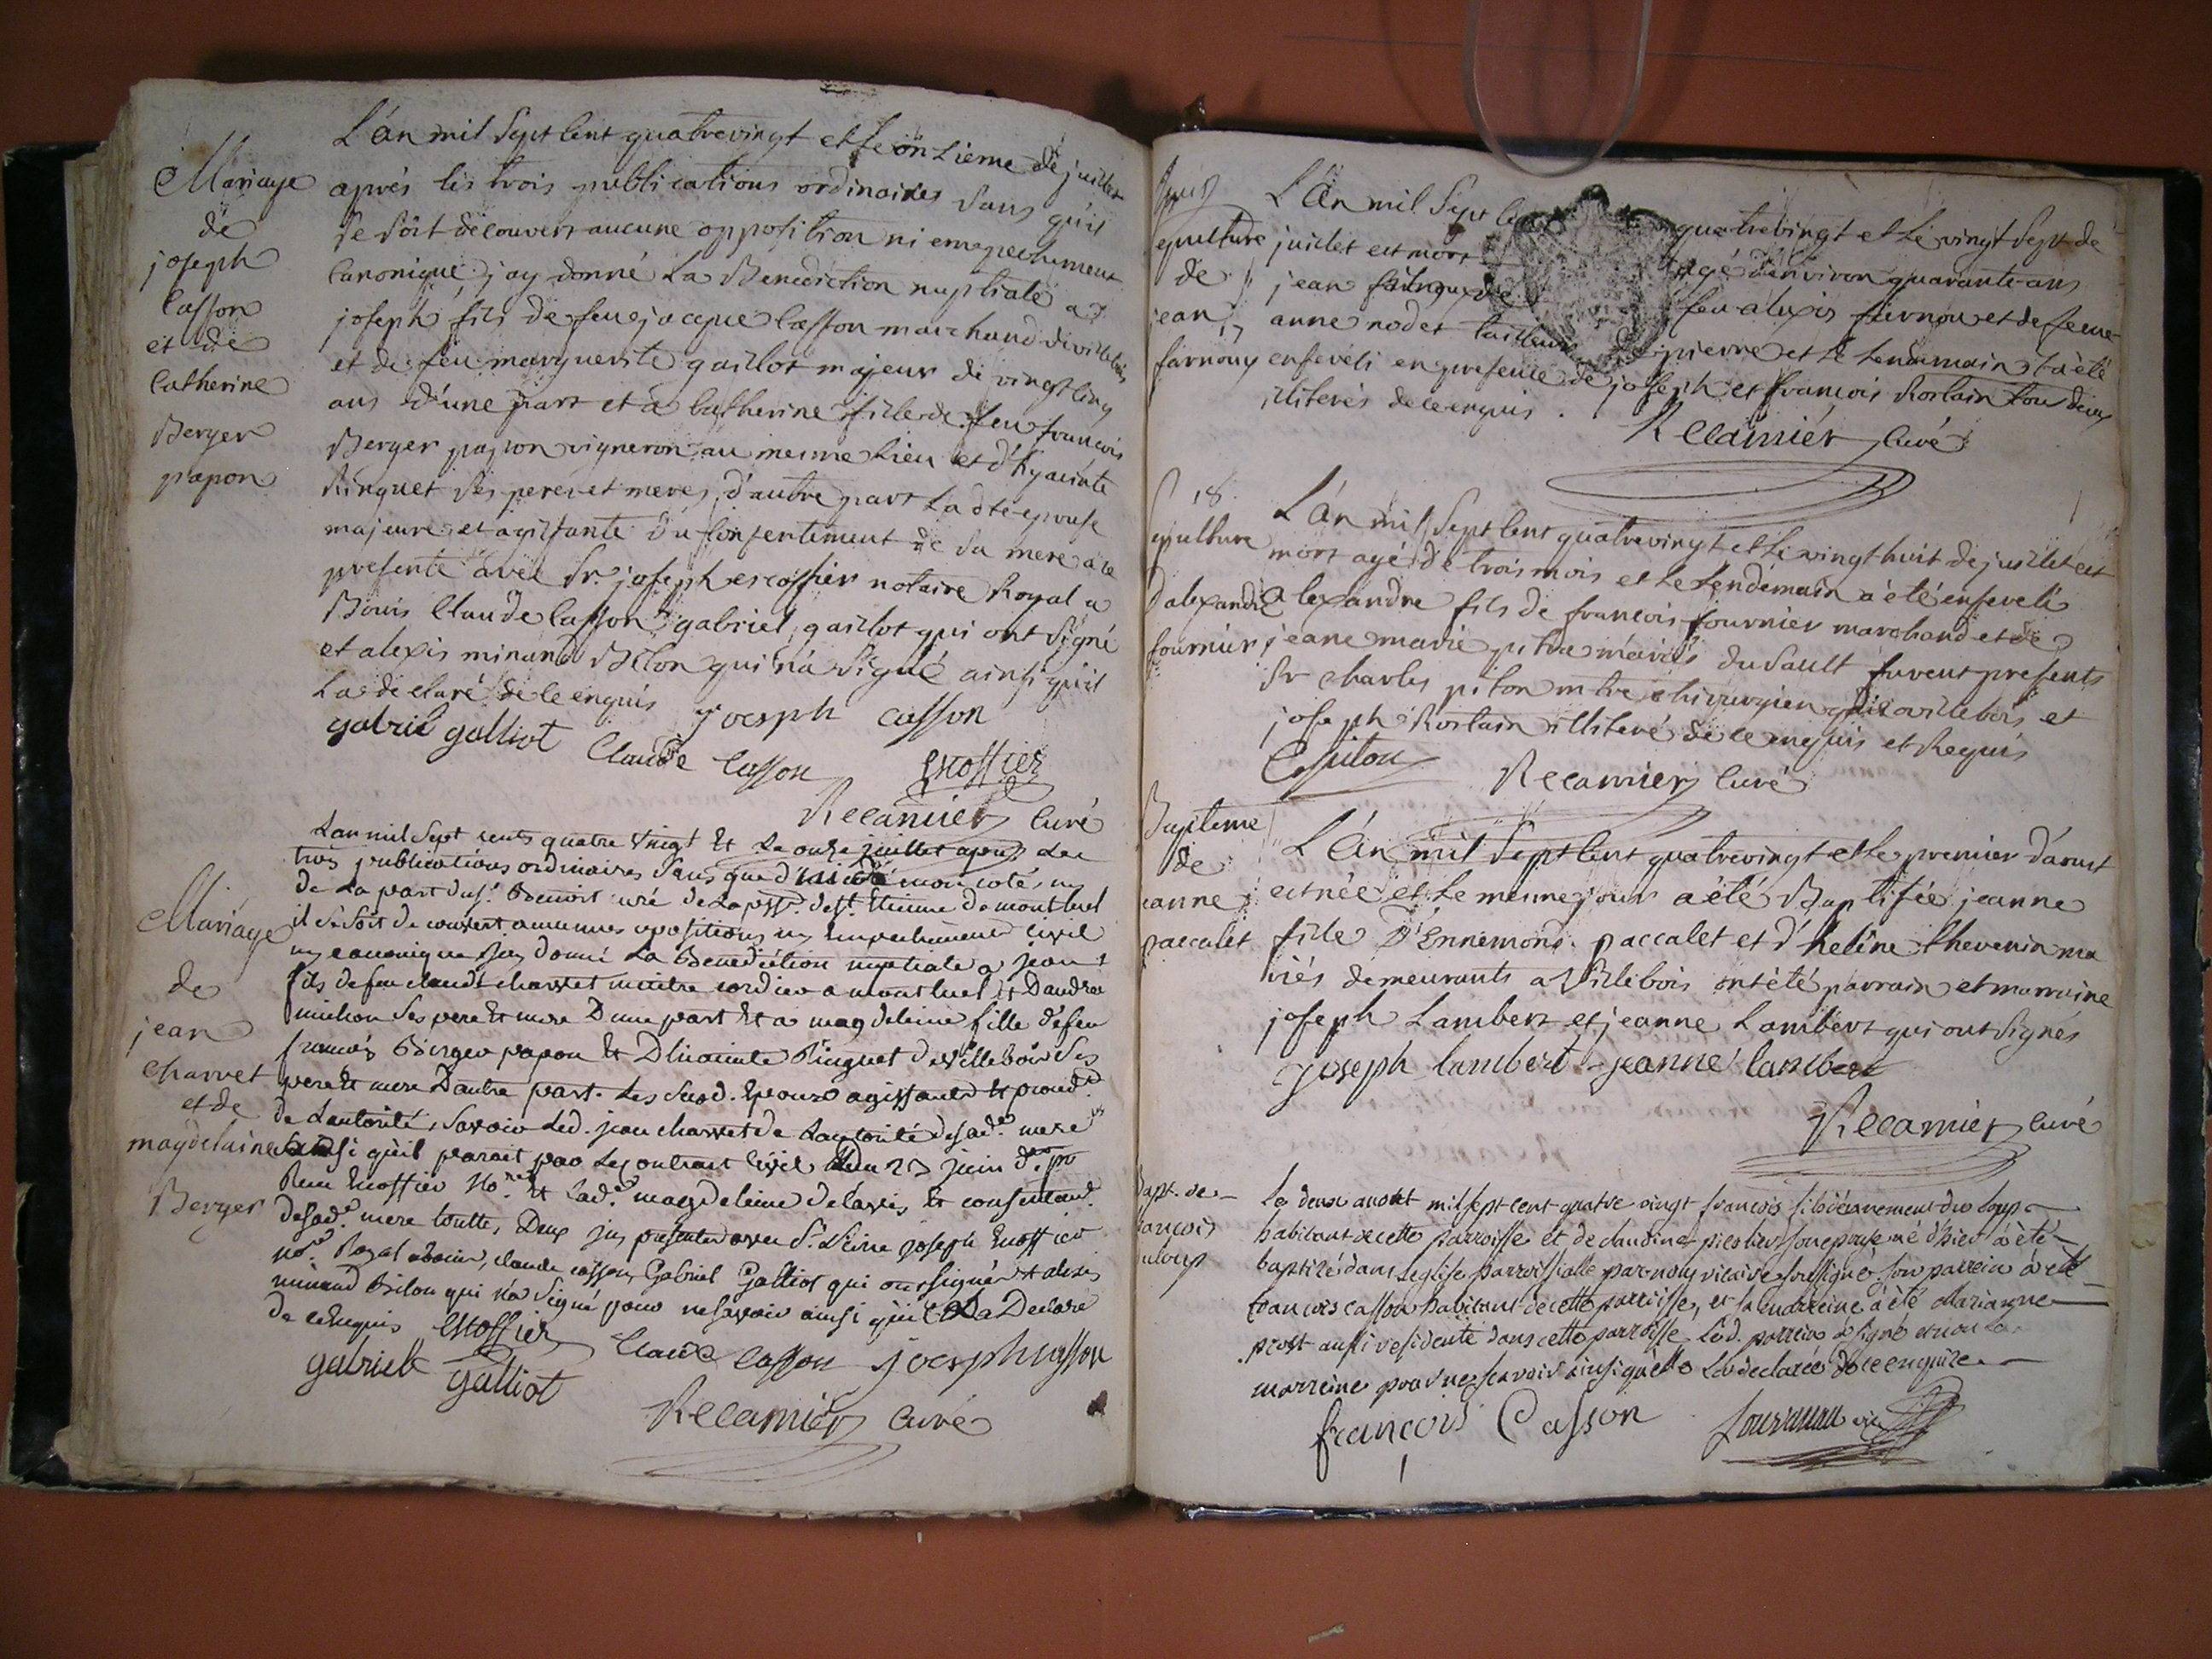 L'án mil Sept Cent quatrevingt et le onzieme de juillet
Mariage
de
joseph
Casson
et de
Catherine
Berger
papon
aprés les trois publications ordinaires sans qu'il
se soit découvert aucune opposition ni empechement
Canonique j'ay donné La Bénédiction nuptiale a
joseph fils de feu jacque Casson marchand de villebois
et de feu marguerite gaillot majeur de vingt cinq
ans d'une part et a Catherine fille de feu françois
Berger papon vigneron au meme Lieu et d'hyacinte
Ringuet ses peres et meres, d'autre part La dte epouse
majeure et agissante du Consentement de sa mere a ce
presente avec Sr. joseph escoffier notaire Royal a
Bouis Claude Casson, gabriel, gaillot qui ont Signé
et alexis minand Bilon qui n'a signé ainsi qu'il
La declaré de ce enquis
joesph casson
gabriel galliot
Claude Casson
Escoffier
Recamier Curé
Lan mil Sept cents quatre vingt Et Le onze juillet apres Les
trois publications ordinaires sans que d' mon coté, ny
de La part du sr. Benoit curé de La psse. de st. Etienne de montluel
il se soit decouvert aucunes opositions ny Empechement Civil
ny canonique j'ay donné La Benediction nuptiale a jean
fils de feu claude charvet maitre cordier a montluel Et Dandrea
michon ses pere Et mere D'une part Et a magdeleine fille de feu
françois Berger papon Et D'hiacinte Ringuet de villebois Ses
pere Et mere D'autre part. Les susd. Epoux agissants Et proced.
de Lautorité, Savoir Led. jean charvet de Lautorité de sad. mere
ainsi qu'il parait par Le contrat Civil du 23 juin der. pr
Reçu Escoffier No.re Et Lad.e magdeleine de Lavis Et consentem.t
de sad.e mere touttes Deux ici presentes avec Sr. joseph Escoffier
no.re Royal a bouis, claude casson Gabriel Galliot qui ont signés Et alexis
minand Bilon qui n'a Signé pour ne savoir ainsi qu'il La Declaré
de ce Enquis
Mariage
de
jean
charvet
et de
magdelaine
Berger
Escoffier
Claude Casson
joesph casson
gabriel galliot
Recamier Curé
epulture
de
jean
farnoux
17
L'Án mil Sept Ce quatrevingt et Le vingt Sept de
juillet est mort agé d'environ quarante ans
jean farnoux de feu alexis farnoux et de feue
anne nodet tailleur pierre et le Lendemain a été
enseveli en presence de joseph et françois Rostain tous deux
illiterés de ce enquis.
Recamier Curé
18
Sepulture
d'alexandre
fournier
L'án mil Sept Cent quatrevingt et Le vingt huit de juillet est
mort agé de trois mois et Le Lendemain a été enseveli
alexandre fils de françois fournier marchand et de
jeane marie pitra mariés du Sault furent presents
Sr charles piton mtre chirurgien de villebois et
joseph Rostain illiteré de ce enquis et Requis
Cspiton
Recamier Curé
Bapteme
de
jeanne
paccalet
L'Án mil Sept Cent quatrevingt et le premier d'aoust
est née et Le meme jour a été Baptisée jeanne
fille D'Ennemond paccalet et d'heléne thevenin ma
riés demeurants a Villebois ont été parrain et marraine
joseph Lambert et jeanne Lambert qui ont signés
joseph lambert jeanne lambert
Recamier Curé
bapt. de
françois
duloup
Le deux aoust mil sept cent quatre vingt françois fils du loup
habitant de cette parroisse et de claudine son epouse né d'hier a été
baptizé dans Leglise parroissialle par nous vicaire soussigné son parrein à été
françois casson habitant de cette parroisse, et sa marreine à été Marianne
prost aussi residente dans cette parroisse, Led. parrein a signé et non La
marreine pour ne scavoir ainsi qu'elle La declaré de ce enquise
françois Casson